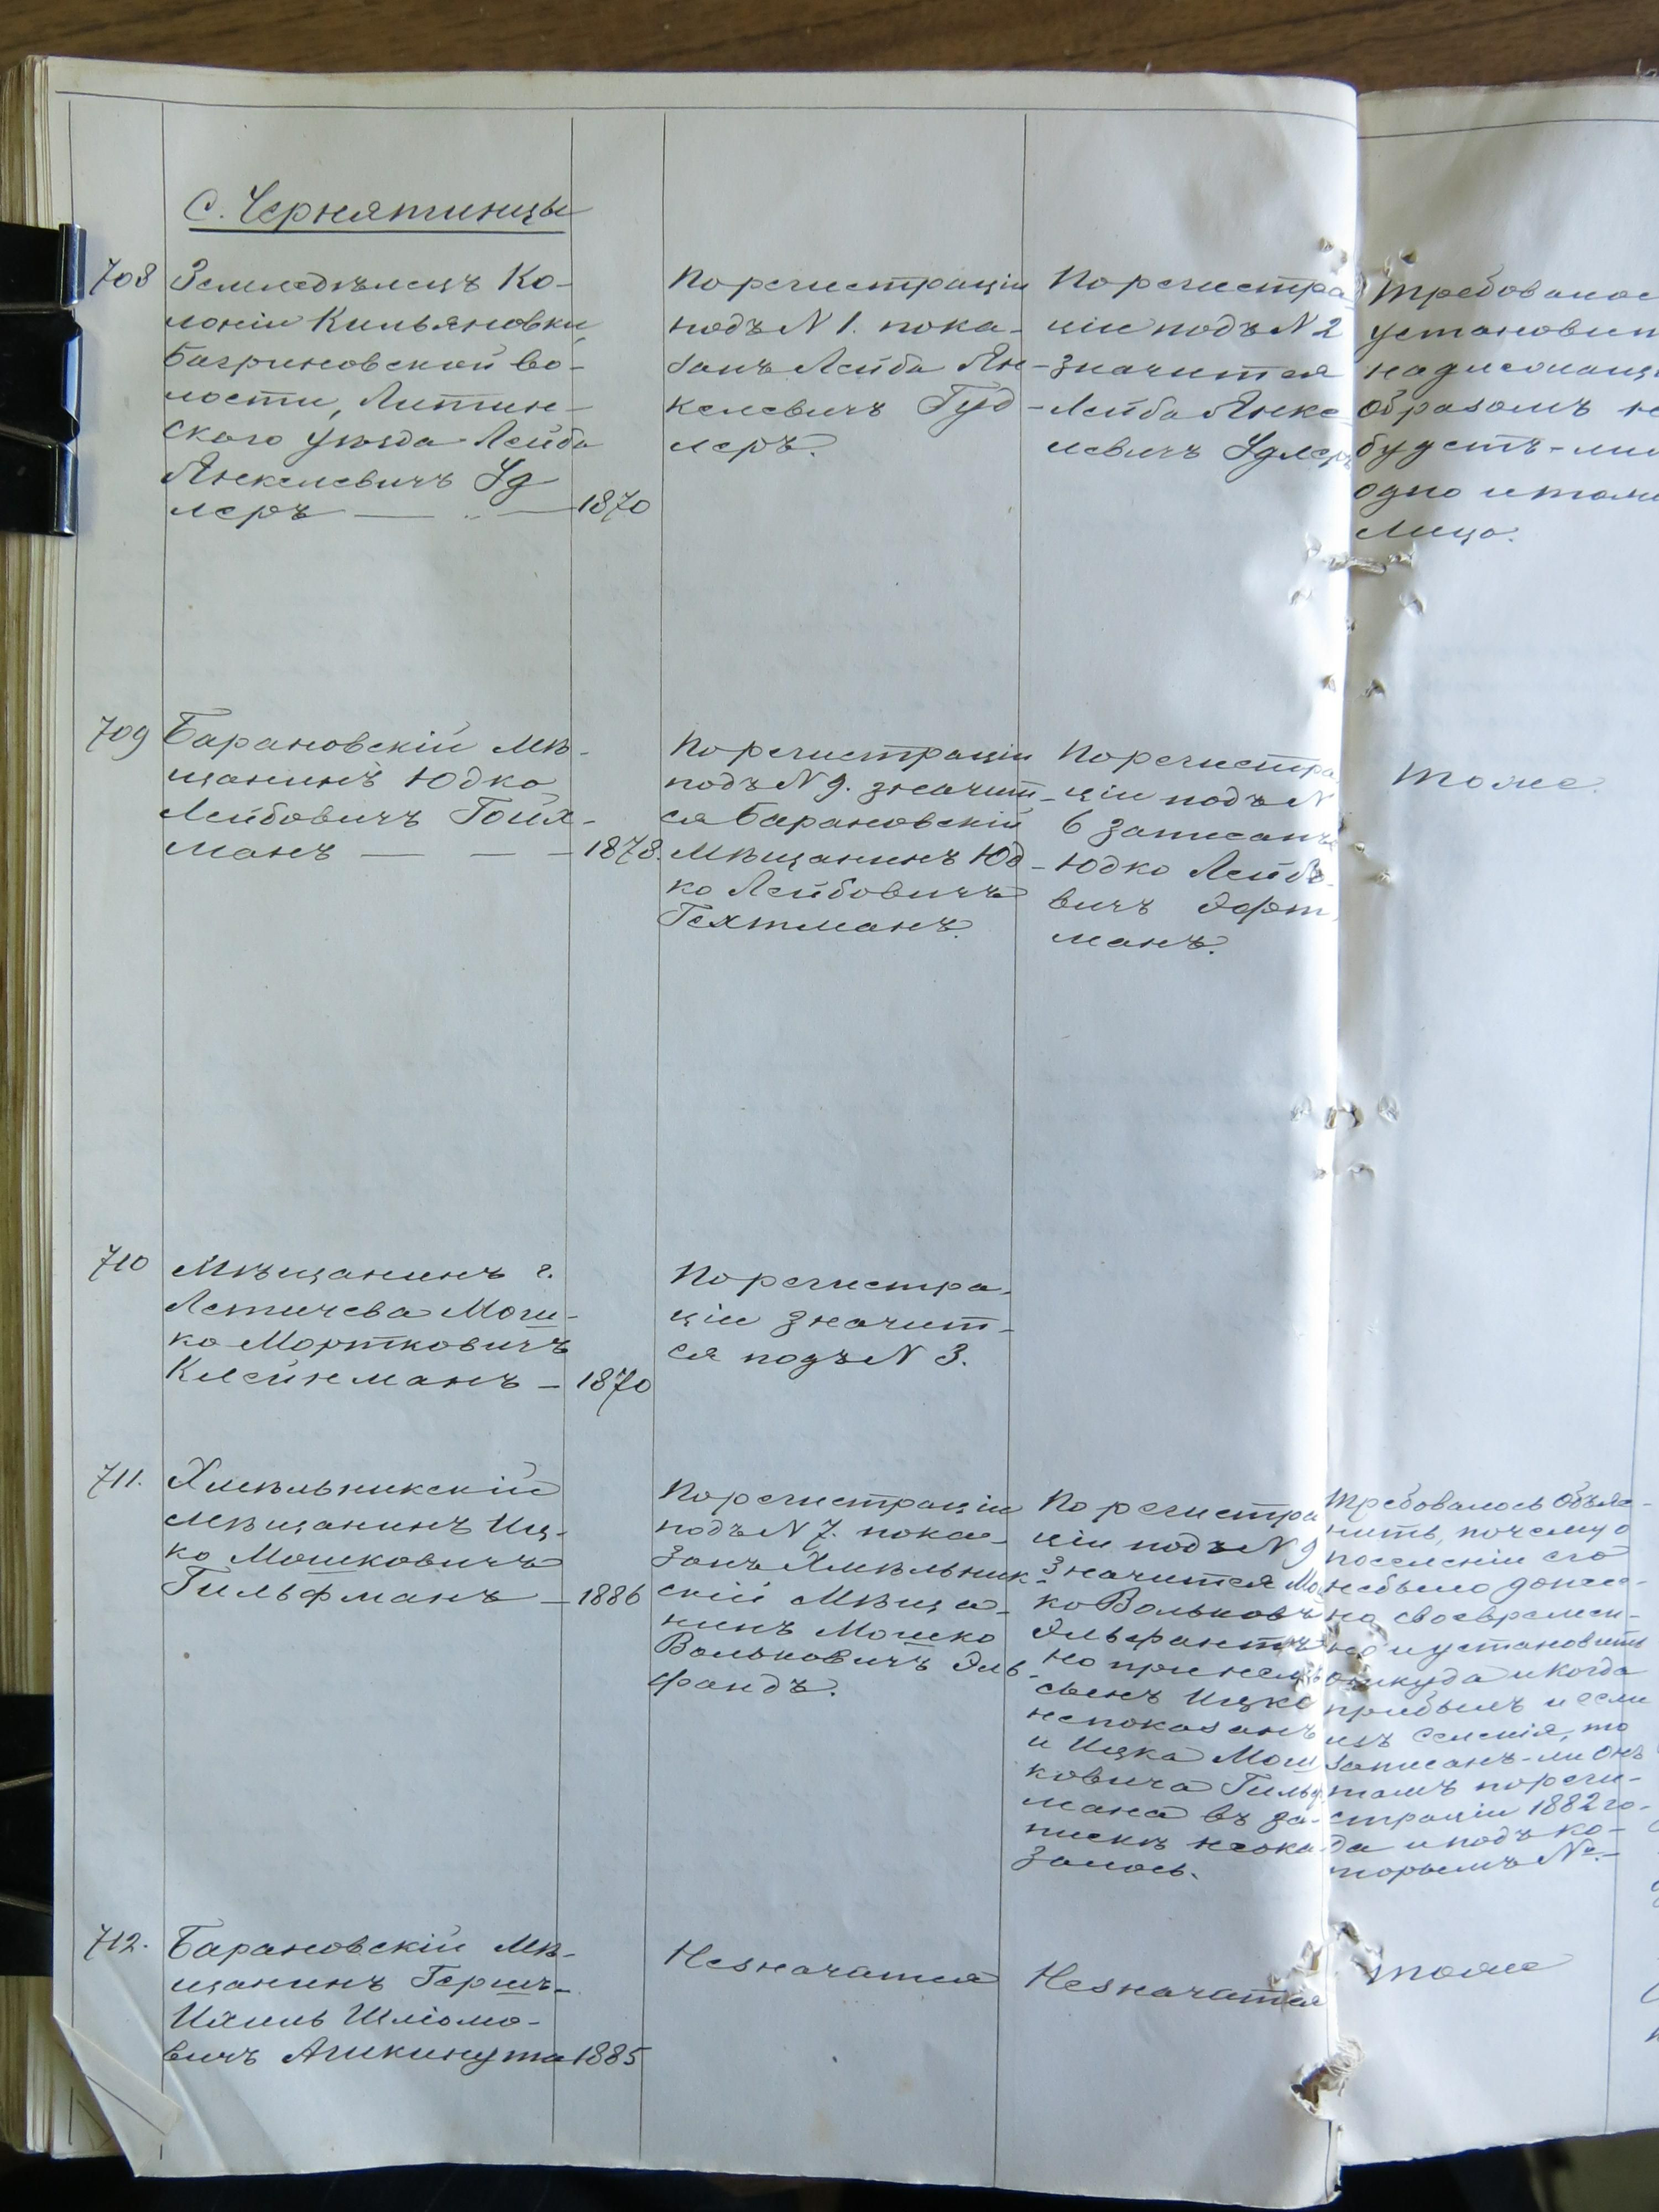 С. Чернятинцы
708
Земледѣлецъ Ко-
лоніи Кильяновки,
Багриновской во-
лости, Литин-
скаго уѣзда Лейба
Янкелевичъ Уд
леръ — 1870
По регистраціи
подъ N 1. пока-
занъ Лейба Ян-
келевичъ Гуд-
леръ.
По регистра
ціи подъ N 2
значится
Лейба Янке
левичъ Удлеръ
Требовалос
установит
надлежащ
образомъ не
будетъ-ли
одно и тоже
лицо.
709
Барановскій мѣ-
щанинъ Юдко
Лейбовичъ Гойх-
манъ — — — 1878.
По регистраціи
подъ N 9. значит-
ся Барановскій
мѣщанинъ Юд-
ко Лейбовичъ
Гехтманъ.
По регистра
ціи подъ N
6 записанъ
Юдко Лейбо-
вичъ Эфт
манъ.
тоже.
710
Мѣщанинъ г.
Летичева Мош-
ко Мортковичъ
Клейнманъ — 1870
По регистра-
ціи значит-
ся подъ N 3.
711.
Хмѣльникскій
мѣщанинъ Иц-
ко Мошковичъ
Гильфманъ — 1886
По регистраціи
подъ N 7. пока-
занъ Хмѣльник-
скій мѣща-
нинъ Мошко
Вольковичъ Эль-
фандъ.
По регистра
ціи подъ N 9
значится Мо
ко Вольковъ
Эльфантъ
но при немъ
сынъ Ицко
непоказанъ
и Ицка Мош
ковича Гильф
мана въ за-
пискѣ неока
залось.
Требовалось объяс-
нить, почему о
поселеніи его
небыло донесе-
но своевремен-
но и установить
откуда и когда
прибылъ и если
изъ селенія, то
записанъ-ли онъ
тамъ по реги-
страціи 1882 го-
да и подъ ко-
торымъ №.-
712.
Барановскій мѣ-
щанинъ Гершъ-
Ихиль Шліомо-
вичъ 1885
Незначится
Незначится
тоже